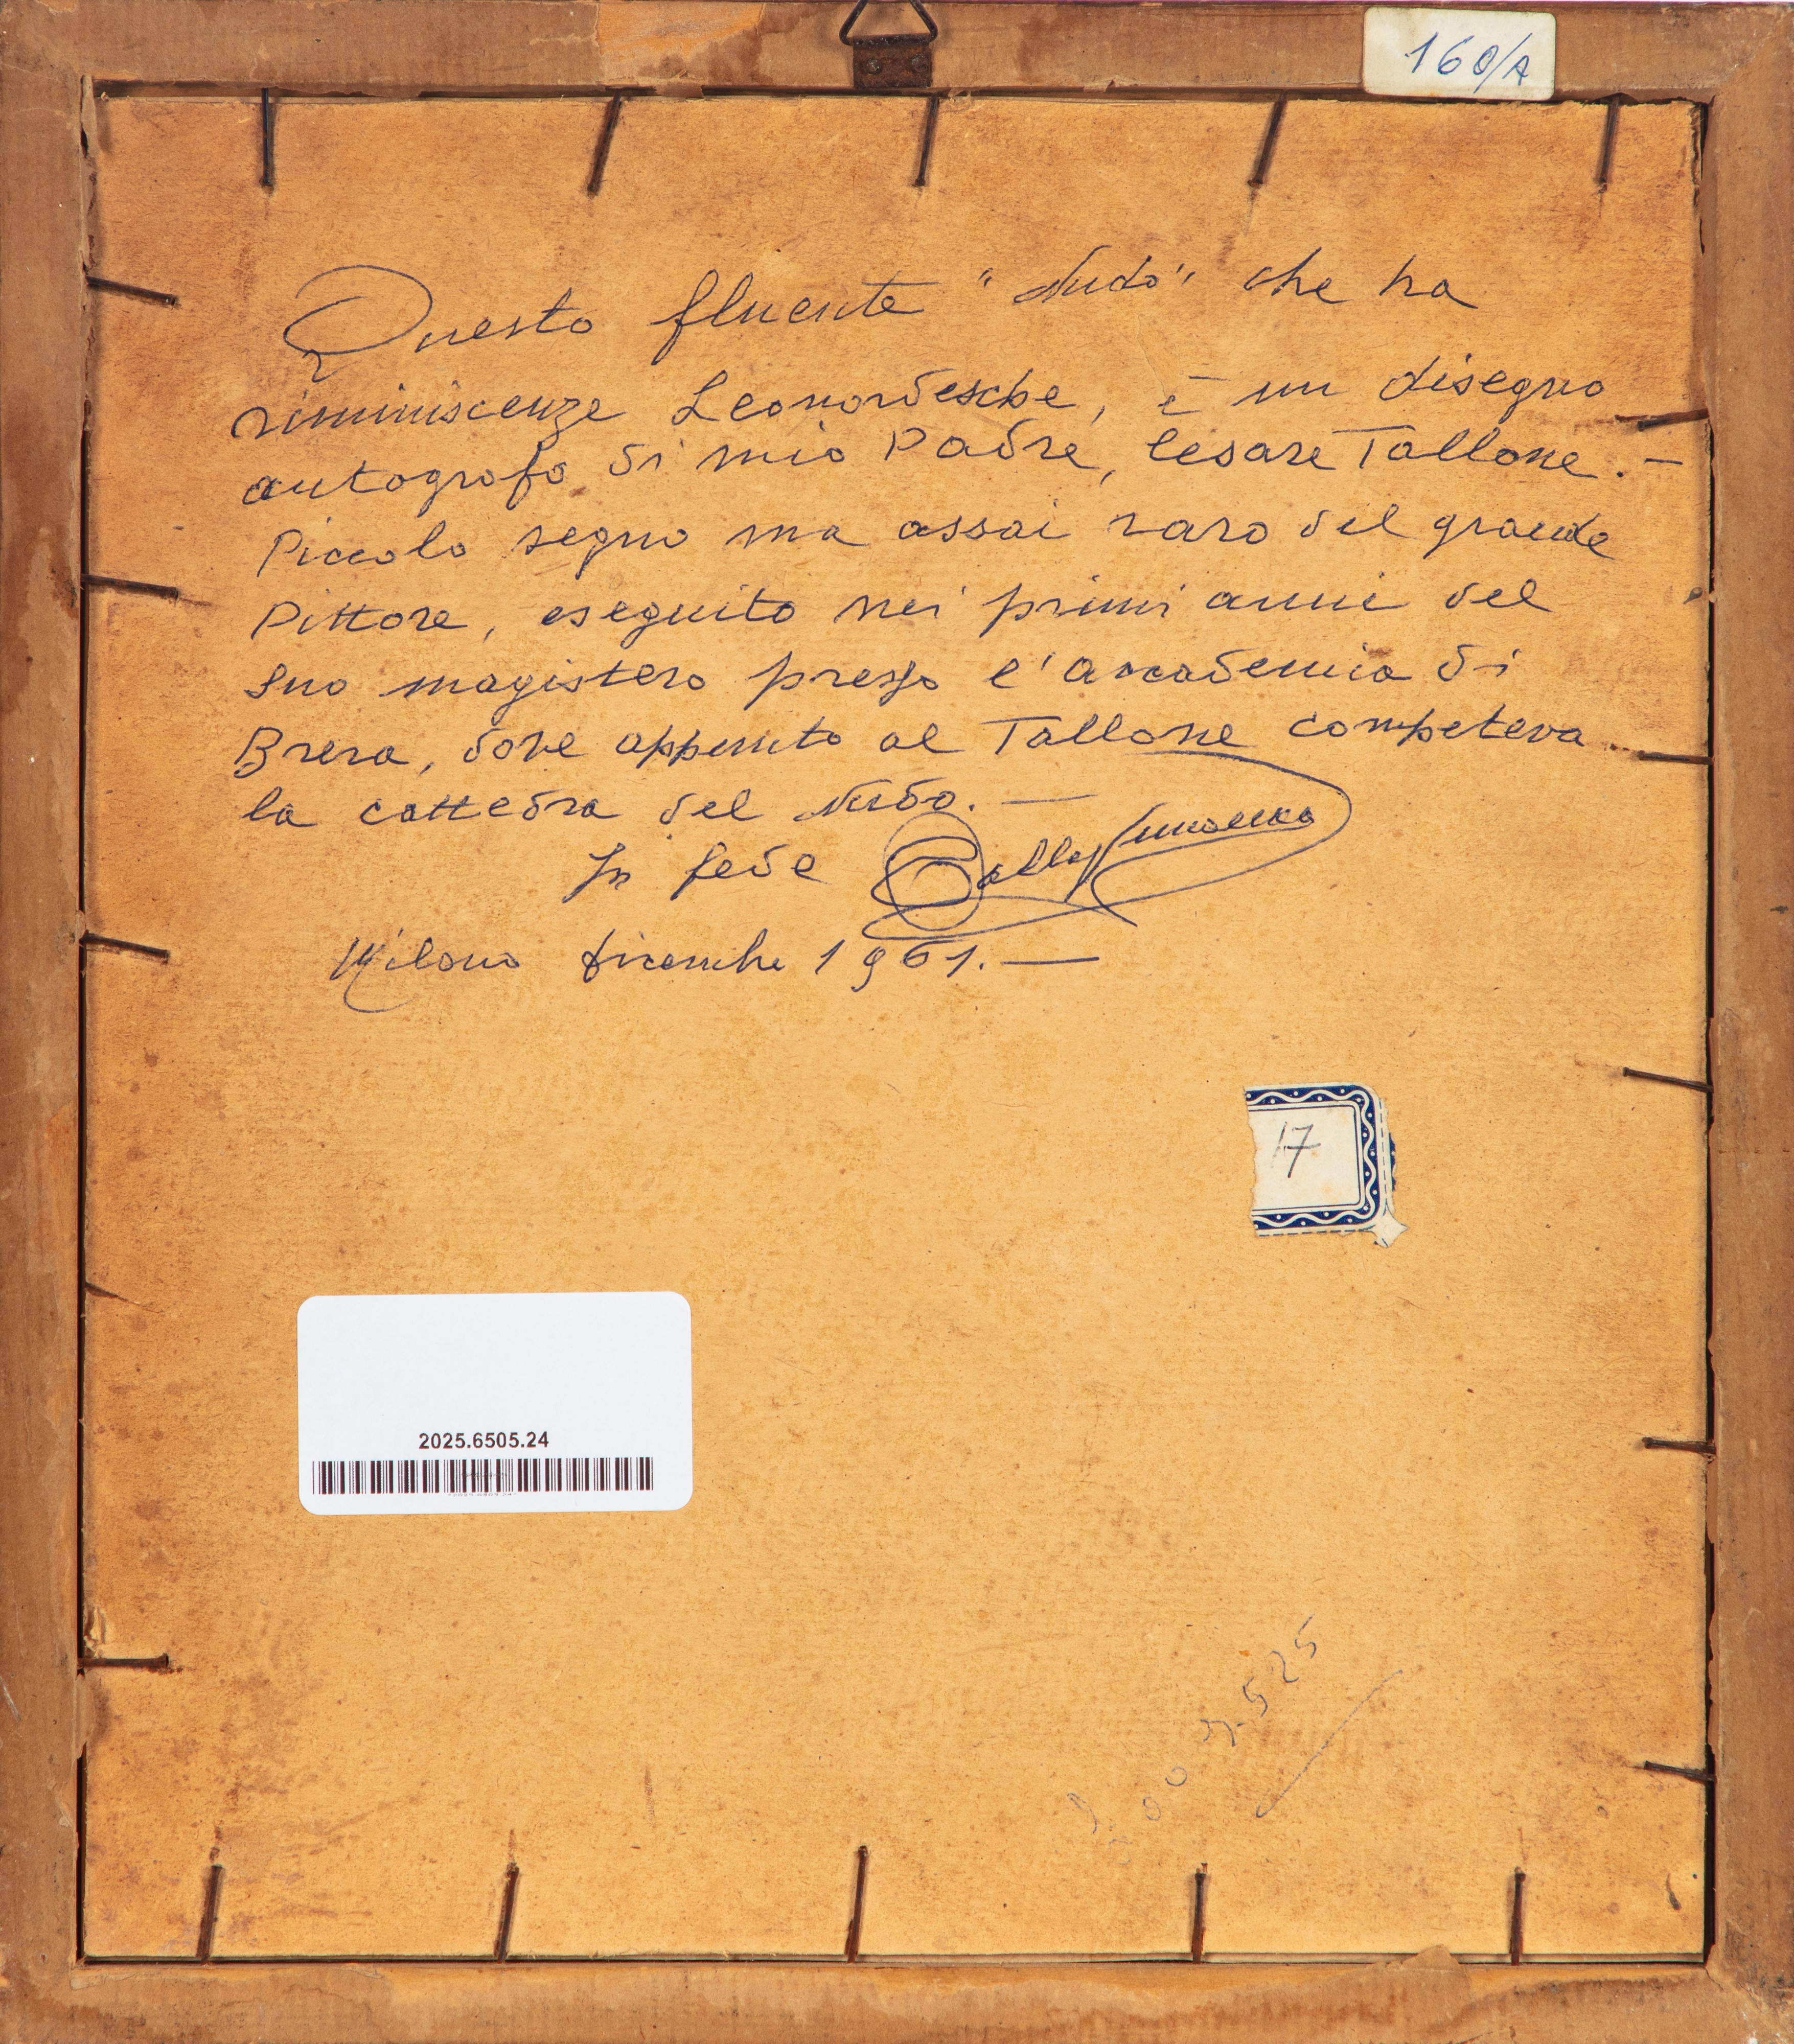 160/A
Questo fluente "Nudo" che ha
riminiscenze Leonardesche, è un disegno
autografo di mio Padre, Cesare Tallone. -
Piccolo segno ma assai raro del grande
Pittore, eseguito nei primi anni del
suo magistero presso l'accademia di
Brera, dove appunto al Tallone competeva
la cattedra del Nudo. —
In fede
Milano dicembre 1961. —
17
2025.6505.24